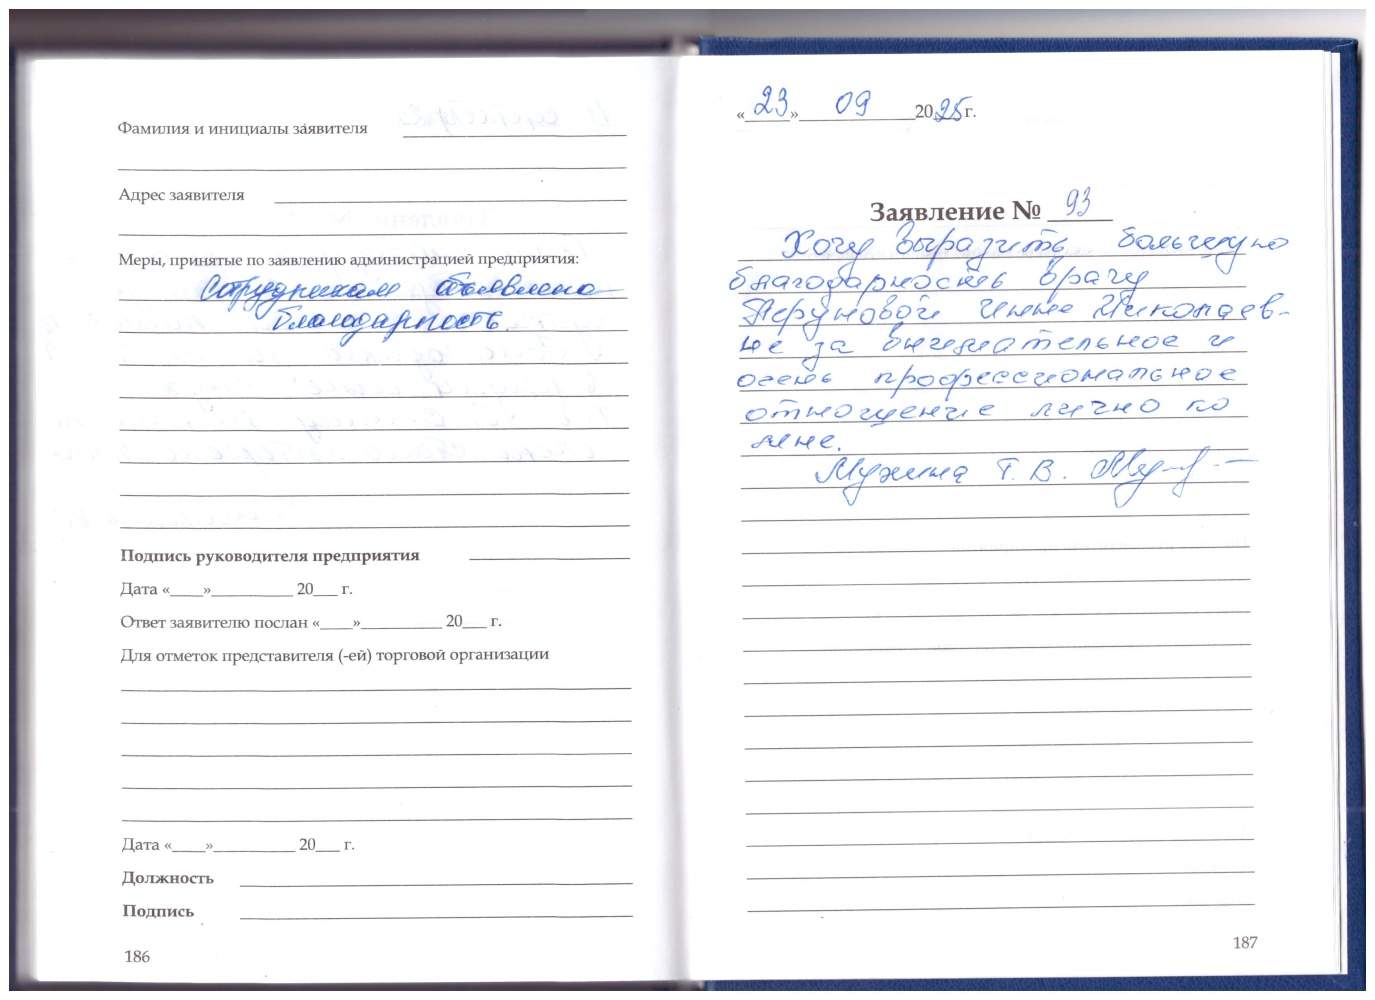 Фамилия и инициалы заявителя
Адрес заявителя
Меры, принятые по заявлению администрацией предприятия:
Сотрудникам объявлена
благодарность.
Подпись руководителя предприятия
Дата «____»__________ 20___ г.
Ответ заявителю послан «____»__________ 20___ г.
Для отметок представителя (-ей) торговой организации
Дата «____»__________ 20___ г.
Должность
Подпись
186
«23» 09 2025 г.
Заявление № 93
Хочу выразить большую
благодарность врачу
Перуновой Инне Николаев-
не за внимательное и
очень профессиональное
отношение лично ко
мне.
Мухина Т. В.
187